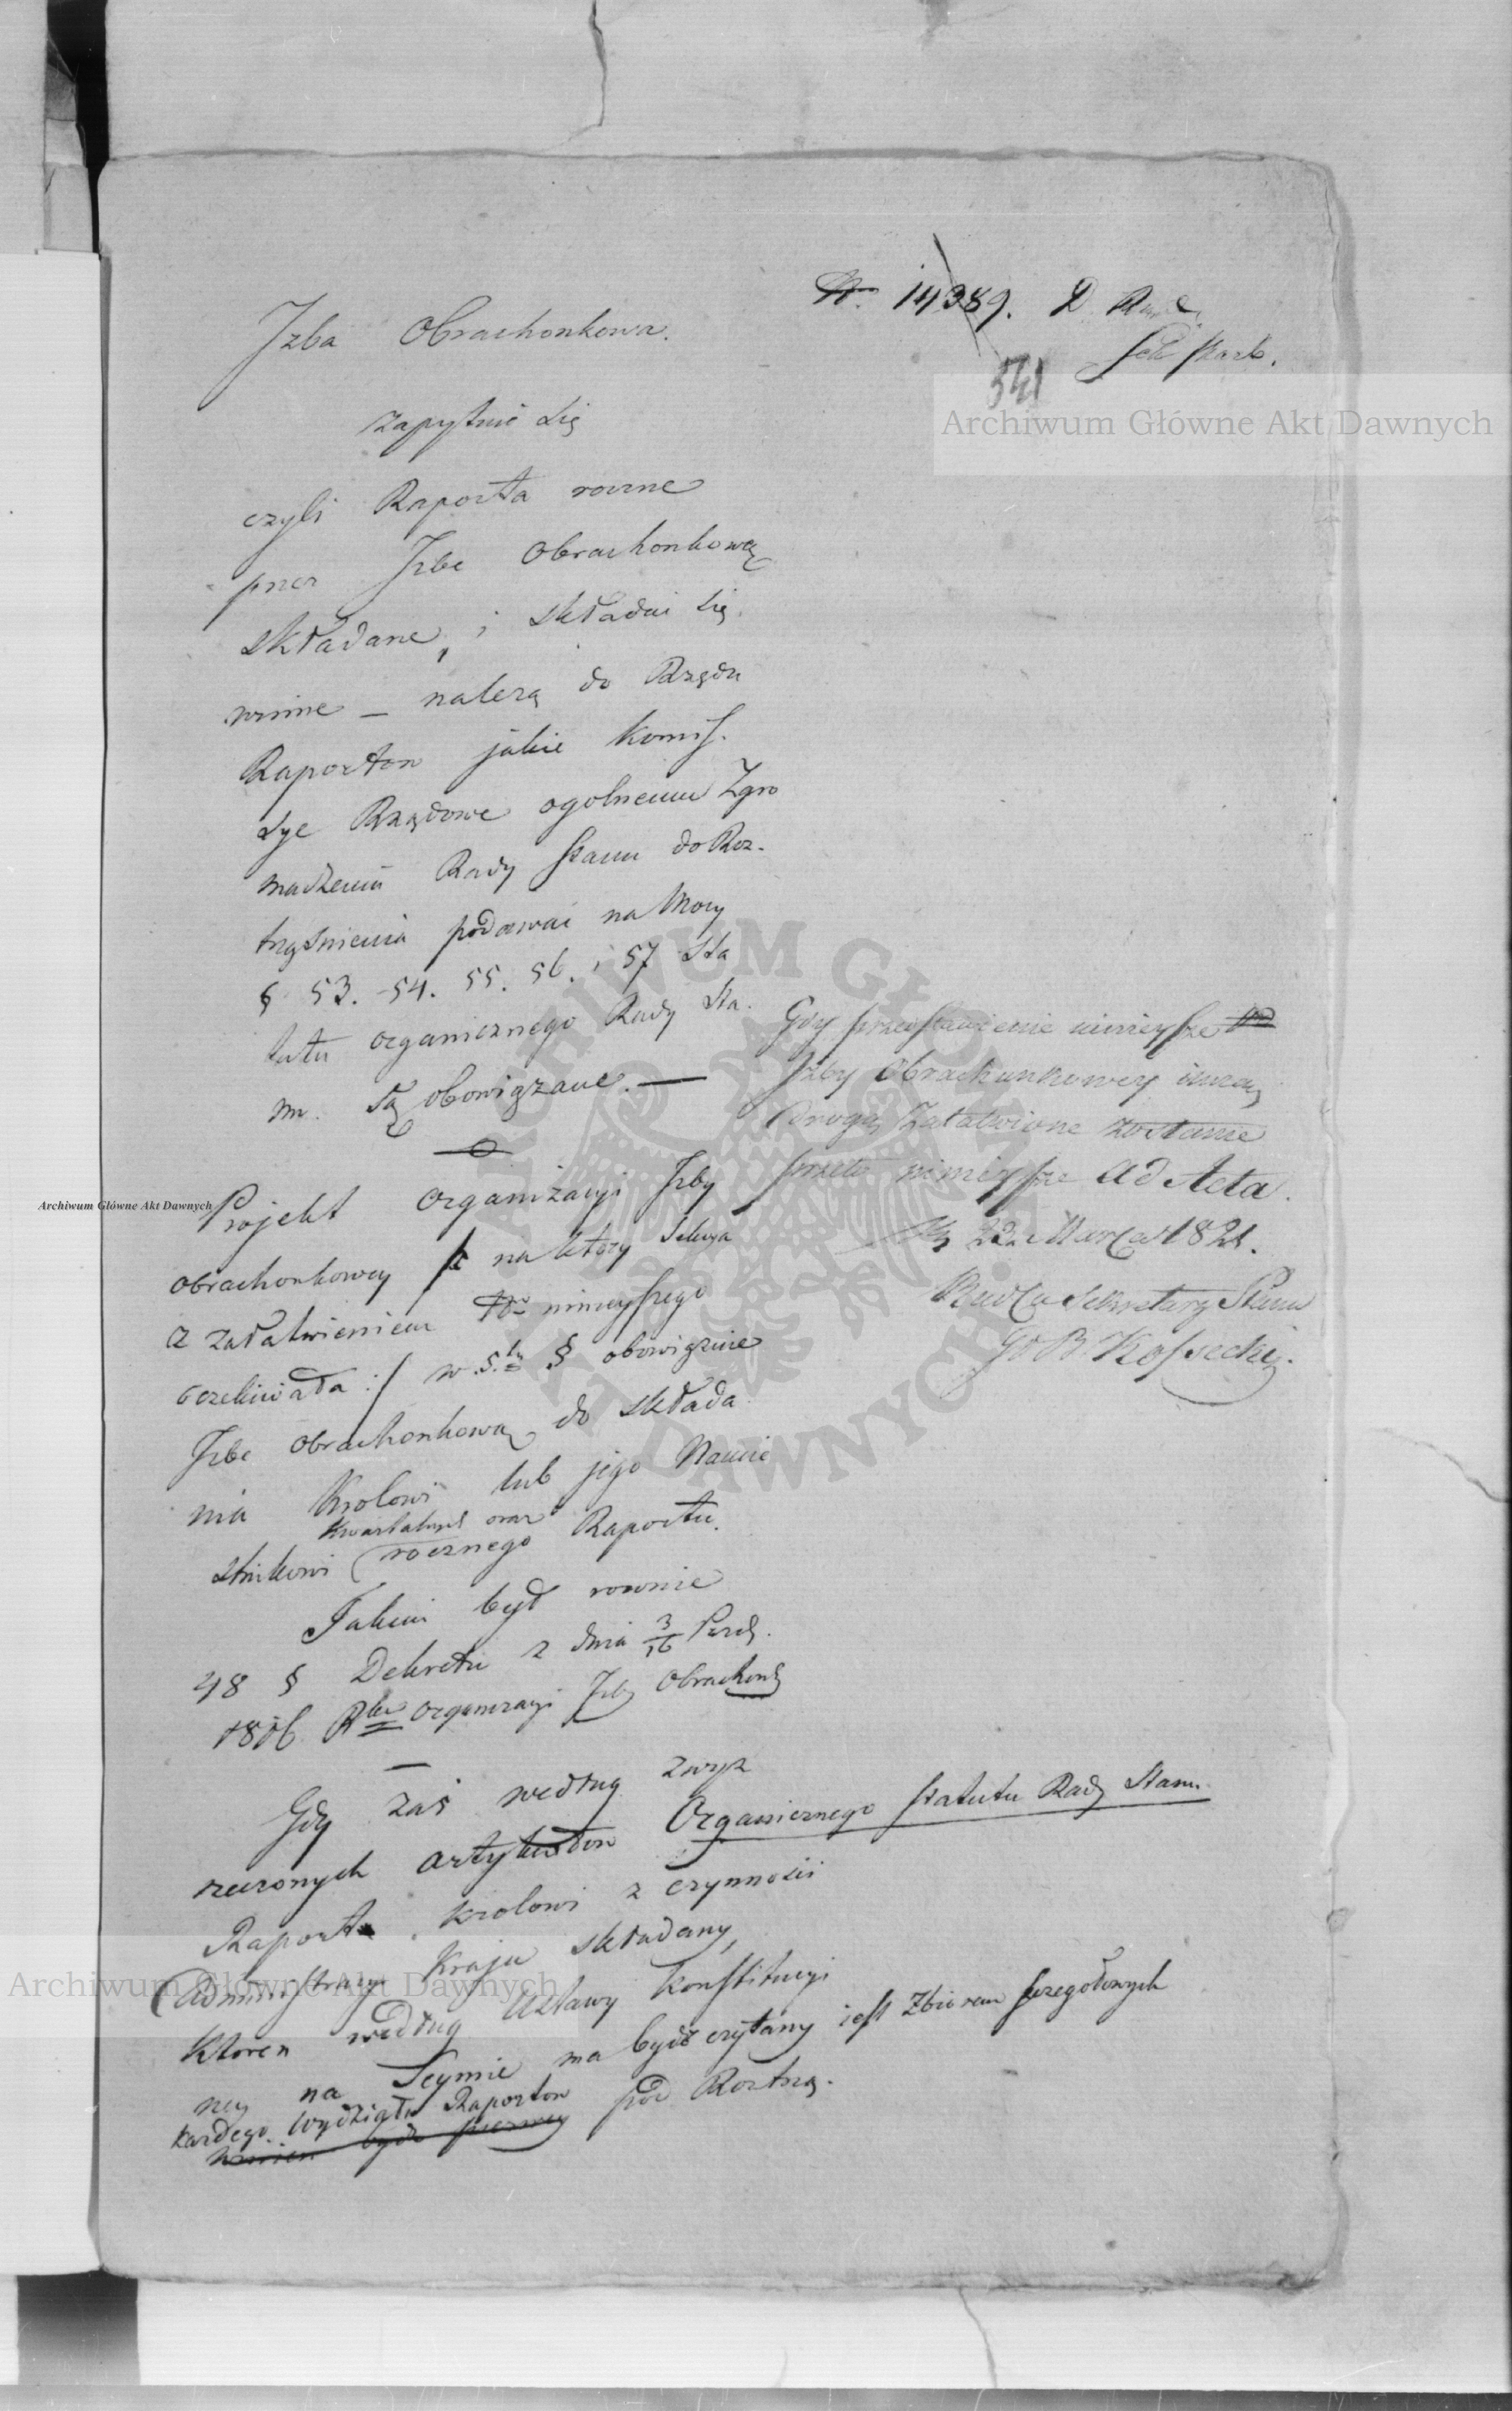 No 14389. D. Rad.
Sek Skarb.
541
Izba Obrachonkowa.
zapytuie się
czyli Raporta roczne
przez Izbe Obrachonkową
składane, i składać się
winne — należą do Rzędu
Raportow jakie Komis.
sye Rządowe ogolnemu Zgro
madzeniu Rady Stanu do Roz-
trząsnienia podawać na Mocy
§ 53. 54. 55. 56. i 57 Sta
tutu organicznego Rady Sta.
nu. Są obowiązane. —
Projekt Organizacyi Izby
obrachonkowey /: na ktory Sekcya
z załatwieniem No ninieyszego
oczekiwała :/ w 5.ty § obowiązuie
Izbe obrachonkową do składa
nia Krolowi lub jego Namie
Kwartalnych oraz
stnikowi rocznego Raportu.
Takim był rownie
48 § Dekretu z dnia 3/16 Paźd.
1816 Rku Organizacyi Izby Obrachonk
Gdy zaś według zwyz
rzeczonych artykułow Organicznego Statutu Rady Stanu.
Raport Krolowi z czynnosci
Administracyi Kraju składany,
ktoren według Ustawy Konstitucyi
ney na Seymie ma bydź czytany iest Zbiorem szczegołowych
każdego Wydziału Raportow
winien bydź pierwey pod Roztrzą-
Gdy przedstawienie ninieysze
Izby Obrachunkowey inną
drogą załatwione zostanie
przeto ninieysze Ad Acta.
23 Marca 1821.
Radca Sekretarz Stanu
G. B. Kossecki.
Archiwum Główne Akt Dawnych
Archiwum Główne Akt Dawnych
Archiwum Główne Akt Dawnych
ARCHIWUM GŁÓWNE AKT DAWNYCH